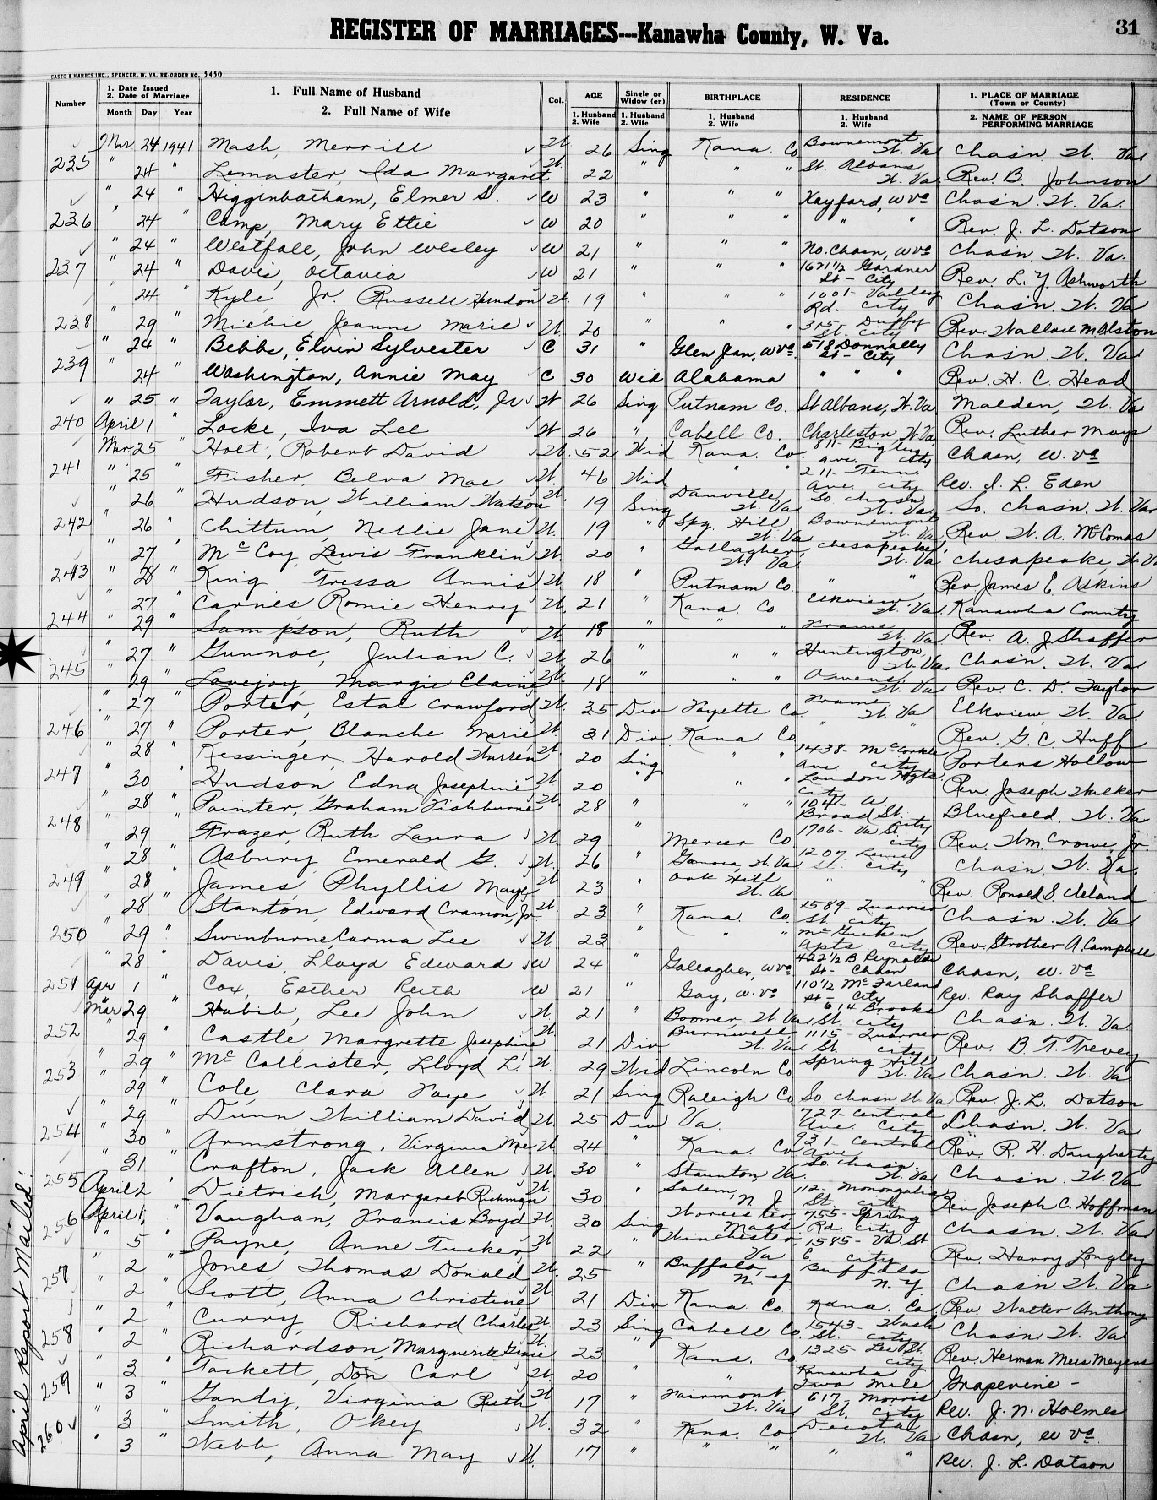 31
REGISTER OF MARRIAGES---Kanawha County, W. Va.
CASTO & HARRIS INC., SPENCER, W. VA. RE-ORDER NO. 5450
Number 1. Date Issued 2. Date of Marriage Month Day Year 1. Full Name of Husband 2. Full Name of Wife Col. AGE 1. Husband 2. Wife Single or Widow (er) 1. Husband 2. Wife BIRTHPLACE 1. Husband 2. Wife RESIDENCE 1. Husband 2. Wife 1. PLACE OF MARRIAGE (Town or County) 2. NAME OF PERSON PERFORMING MARRIAGE
Mar 24 1941 Mash, Merrill W 26 Sing Kana. Co Bownemont W. Va Chasn W. Va
235 " 24 " Lemaster, Ida Margaret W 22 " " " St Albans W. Va Rev. B. Johnson
" 24 " Higginbatham, Elmer S. W 23 " " " Kayford, W Va Chasn. W. Va.
236 " 24 " Camp, Mary Ettie W 20 " " " " " Rev. J. L. Dotson
" 24 " Westfall, John Wesley W 21 " " " No. Chasn, W Va Chasn W. Va.
237 " 24 " Davis, Octavia W 21 " " " 1621 1/2 Gardner St - City Rev. L. Y Ashworth
" 24 " Kyle, Jr. Russell Hundon W. 19 " " " 1001- Valley Rd. City Chasn. W. Va
238 " 29 " Michie, Jeanne Marie W. 20 " " " 305 Duffy St. City Rev. Wallace M Alston
" 24 " Bebbs, Elvin Sylvester C 31 " Glen Jean, W Va 518 Donnally St - City Chasn W. Va
239 " 24 Washington, Annie May C 30 Wid Alabama " " " Rev. H. C. Head
" 25 " Taylor, Emmett Arnold, Jr W 26 Sing Putnam Co. St Albans, W. Va Malden, W. Va
240 April 1 Locke, Iva Lee W 26 " Cabell Co. Charleston W. Va Rev. Luther Mays
Mar 25 " Holt, Robert David W. 52 Wid Kana. Co Ave. City Chasn, W. Va
241 " 25 Fisher, Belva Mae W. 46 Wid " " 211- Tenn Ave. City Rev. I. L. Eden
" 26 " Hudson, William Watson W. 19 Sing Danville W. Va So Chasn W. Va So. Chasn W. Va
242 " 26 " Chittum, Nellie Jane W. 19 " Spg. Hill W. Va Bownemont W. Va Rev W. A. McComas
" 27 " McCoy Lewis Franklin W. 20 " Gallagher W. Va Chesapeake, W. Va Chesapeake W. Va
243 " 28 " King Tressa Annis W. 18 " Putnam Co " " Rev James E. Askins
" 27 " Carnes Romie Henry W. 21 " Kana Co Elkview W. Va Kanawha County
244 " 29 Sampson, Ruth W. 18 " " Frame W. Va Rev. A. J Shaffer
" 27 " Gunnoe, Julian C. W. 26 " " " Huntington, W. Va Chasn. W. Va
245 " 29 " Lovejoy, Margie Elaine W. 18 " " " W. Va Rev. C. D. Taylor
" 27 Porter, Estal Crawford W. 35 Div Fayette Co Frame W. Va Elkview W. Va
246 " 27 " Porter, Blanche Marie W. 31 Div. Kana Co " " Rev. G. C. Huff
" 28 " Kessinger, Harold Warren W. 20 Sing " " 1438 McCorkle Ave City Porters Hollow
247 " 30 " Hudson Edna Josephine W 20 " " " London Hgts. City Rev Joseph Walker
" 28 " Painter, Graham Fishburne W. 28 " " " 1041 A Broad St. City Bluefield W. Va
248 " 29 " Frazer, Ruth Laura W. 29 " Mercer Co 1706- Va St City Rev. Wm. Crowe, Jr
" 28 " Asbury, Emerald G. W. 26 " W. Va 1207 Lewis St. City Chasn W. Va.
249 " 28 " James, Phyllis Maye W 23 " Oak Hill W. Va " " Rev Ronald E Cleland
" 28 " Stanton, Edward Cramon, Jr W 23 " Kana Co 1589 Quarrier St City Chasn W. Va
250 " 29 " Swinburne, Carma Lee W 22 " " " Apts City Rev. Strother A. Campbell
" 28 " Davis Lloyd Edward W 24 " Gallagher, W Va 422 1/2 B Reynolds St - Chasn Chasn, W. Va
251 Apr 1 " Cox, Esther Ruth W 21 " Gay, W. Va 110 1/2 McFarland St - City Rev. Ray Shaffer
Mar 29 " Habib, Lee John W. 21 " Boomer, W. Va 614 Brooks St. City Chasn. W. Va
252 " 29 " Castle Margrette Josephine W 21 Div Burnwell W. Va 1115- Quarrier St City Rev. B. T. Trevey
" 29 " McCallister, Lloyd L. W 29 Wid Lincoln Co Spring Hill W. Va Chasn. W. Va
253 " 29 " Cole, Clara Faye W 21 Sing Raleigh Co So Chasn W. Va Rev. J. L. Dotson
" 29 " Dunn William David W 25 Div Va. 727 Central Ave City Chasn. W. Va
254 " 30 " Armstrong, Virginia Mae W 24 " Kana. Co 931 Central Ave Rev. R. H. Daugherty
" 31 Crafton, Jack Allen W 30 " Staunton Va. So. Chasn. W. Va Chasn. W. Va
255 April 2 Dietrich, Margaret Rickman W 30 " Salem, N. J. 112- Monongalia St City Rev. Joseph C. Hoffman
256 April 1 " Vaughan, Francis Boyd W. 30 Sing Worcester Mass 755- Spring Rd City Chasn. W. Va
" 5 Payne, Anne Tucker W 22 Winchester Va 1585- Va St E City Rev. Harry Longley
" 2 " Jones, Thomas Donald W. 25 " Buffalo N. Y Buffalo N. Y. Chasn W. Va
257 " 2 Scott, Anna Christine W 21 Div Kana Co Kana. Co Rev. Walter Anthony
" 2 " Curry, Richard Charles W 23 Sing Cabell Co. 1543- Wash St. City Chasn W. Va
258 " 2 Richardson, Marguerite Grace W. 23 " Kana. Co 1325- Lee St. City Rev. Herman Mees Meyers
" 3 Tackett, Don Carl W 20 " " Kanawha Two Mile Grapevine -
259 " 3 " Gandy, Virginia Ruth W 17 " Fairmont W. Va 617 Morris St. City Rev. J. N. Holmes
" 3 Smith, Okey W. 32 " Kana. Co Decota W. Va Chasn, W Va.
260 " 3 " Webb, Anna May W. 17 " " " " " Rev. J. L. Dotson
April Report Mailed.